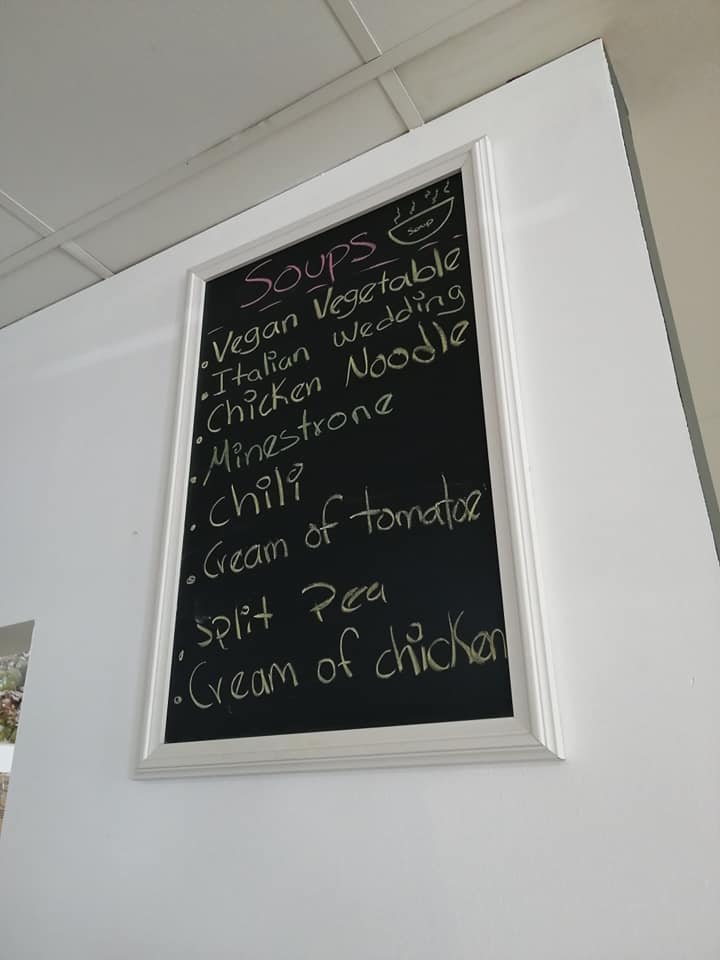 Soup
Soups
• Vegan Vegetable
• Italian Wedding
• Chicken Noodle
• Minestrone
• Chili
• Cream of tomatoe
• Split Pea
• Cream of chicken